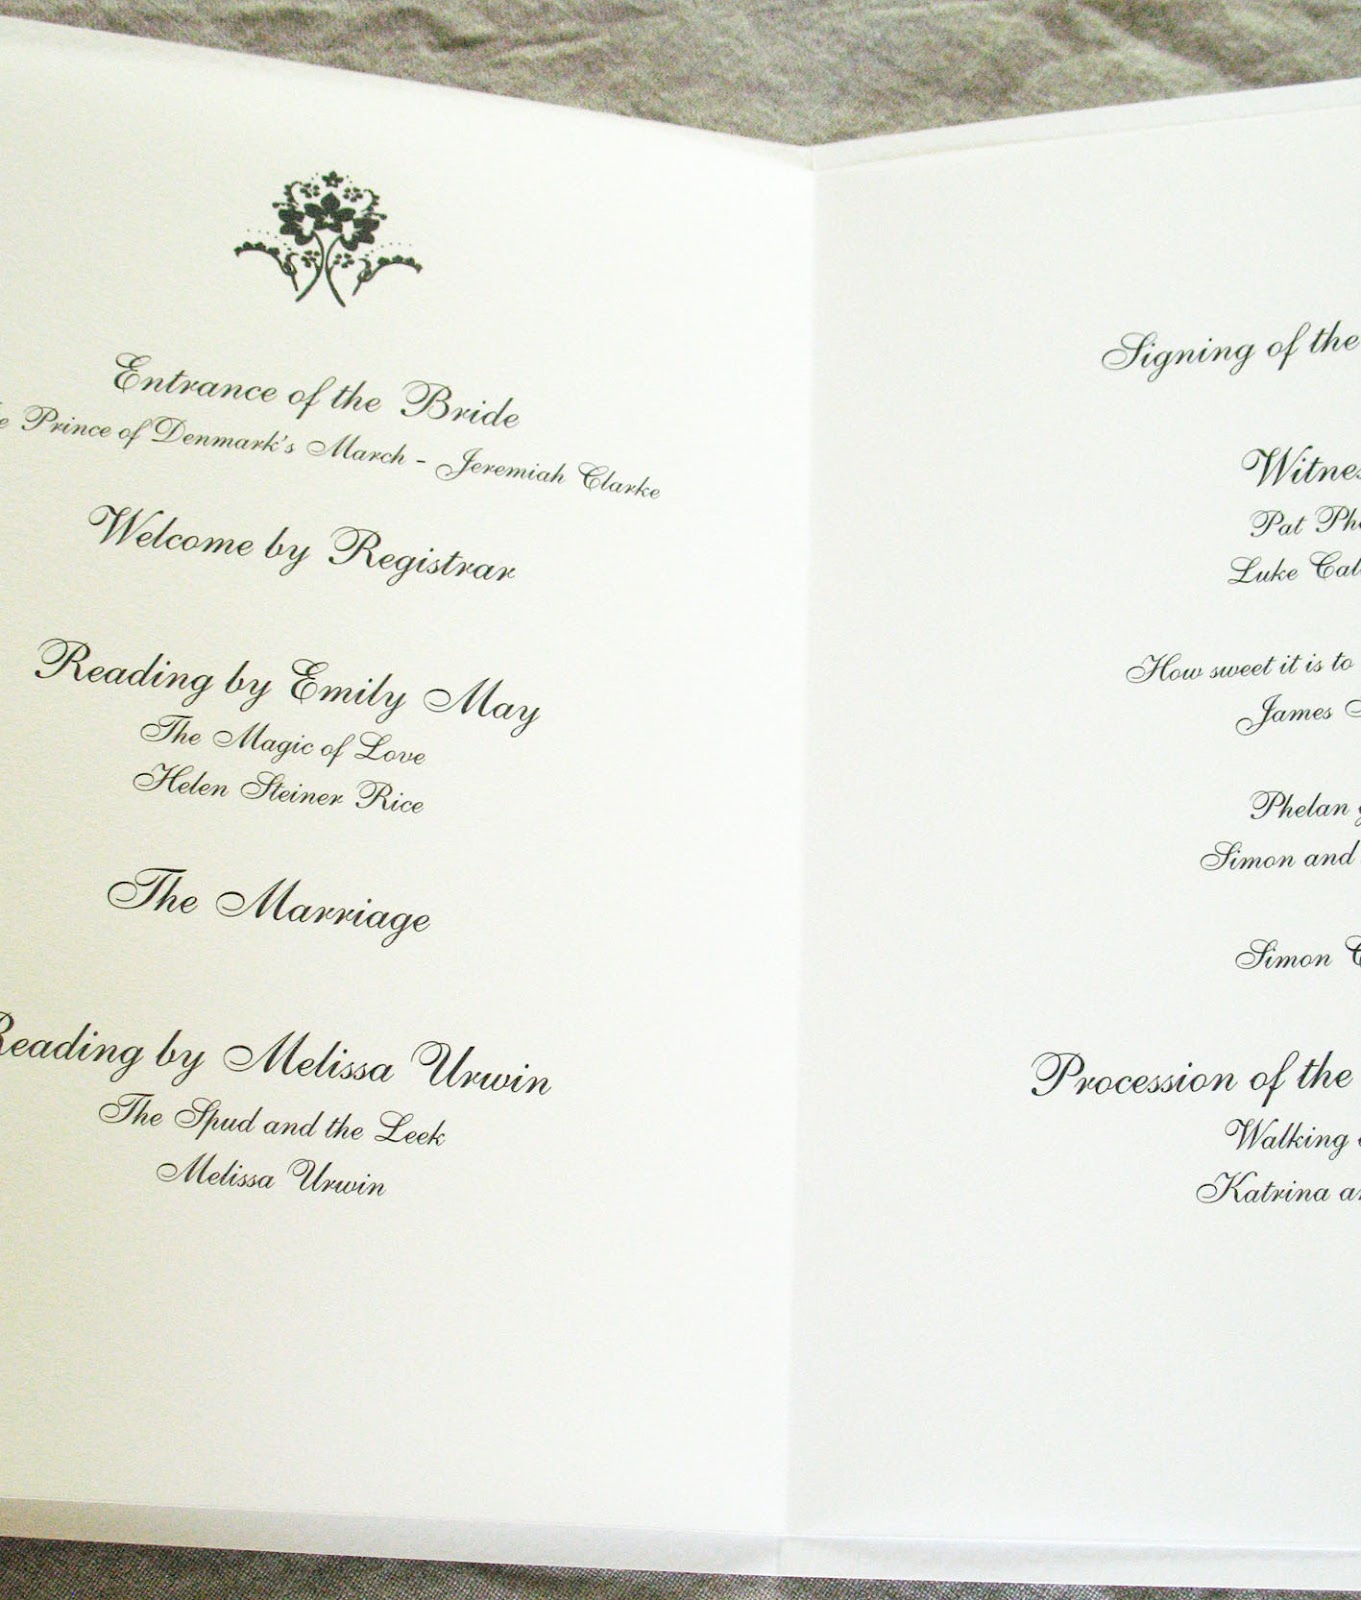 Entrance of the Bride
Prince of Denmark's March - Jeremiah Clarke
Welcome by Registrar
Reading by Emily May
The Magic of Love
Helen Steiner Rice
The Marriage
Reading by Melissa Urwin
The Spud and the Leek
Melissa Urwin
Signing of the
Pat
Luke
How sweet it is to
James
Phelan
Simon and
Simon
Procession of the
Walking
Katrina